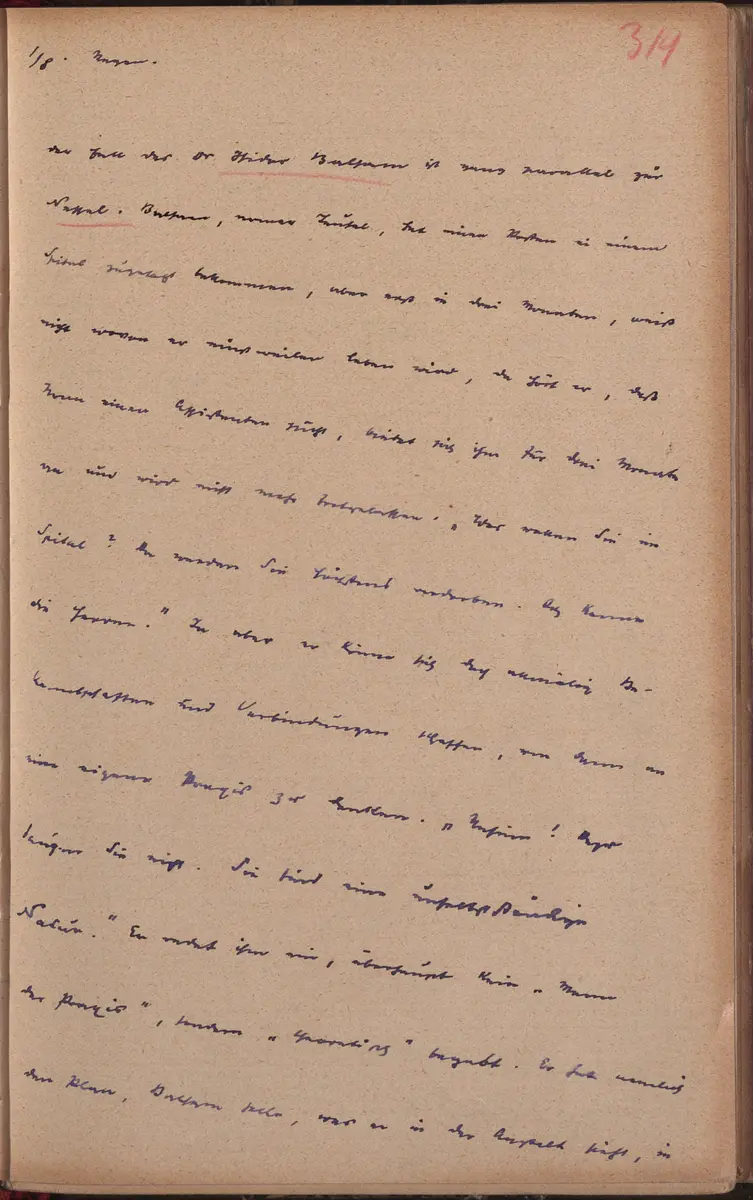 314
1/8.
der Fall des Dr Isidor Balsam ist ganz parallel zur
Nassal. Balsam, armer Teufel, hat einen Posten in einem
Spital zugesagt bekommen, aber erst in drei Monaten, weiß
nicht wovon er einstweilen leben wird, da hört er, daß
einen Assistenten sucht, bietet sich ihm für drei Monate
an und wird nicht mehr losgelassen. „Was wollen Sie im
Spital? Da werden Sie höchstens verderben. Ich kenne
die Herren." Ja aber er könne sich doch allmälig Be-
kanntschaften und Verbindungen schaffen, um dann an
eine eigene Praxis zu denken. „Unsinn!
taugen Sie nicht. Sie sind eine unselbstständige
Natur." Er redet ihm ein, überhaupt kein „Mann
der Praxis", sondern „theoretisch" begabt. Er hat nämlich
den Plan, Balsam solle, was er in der Anstalt sieht, in